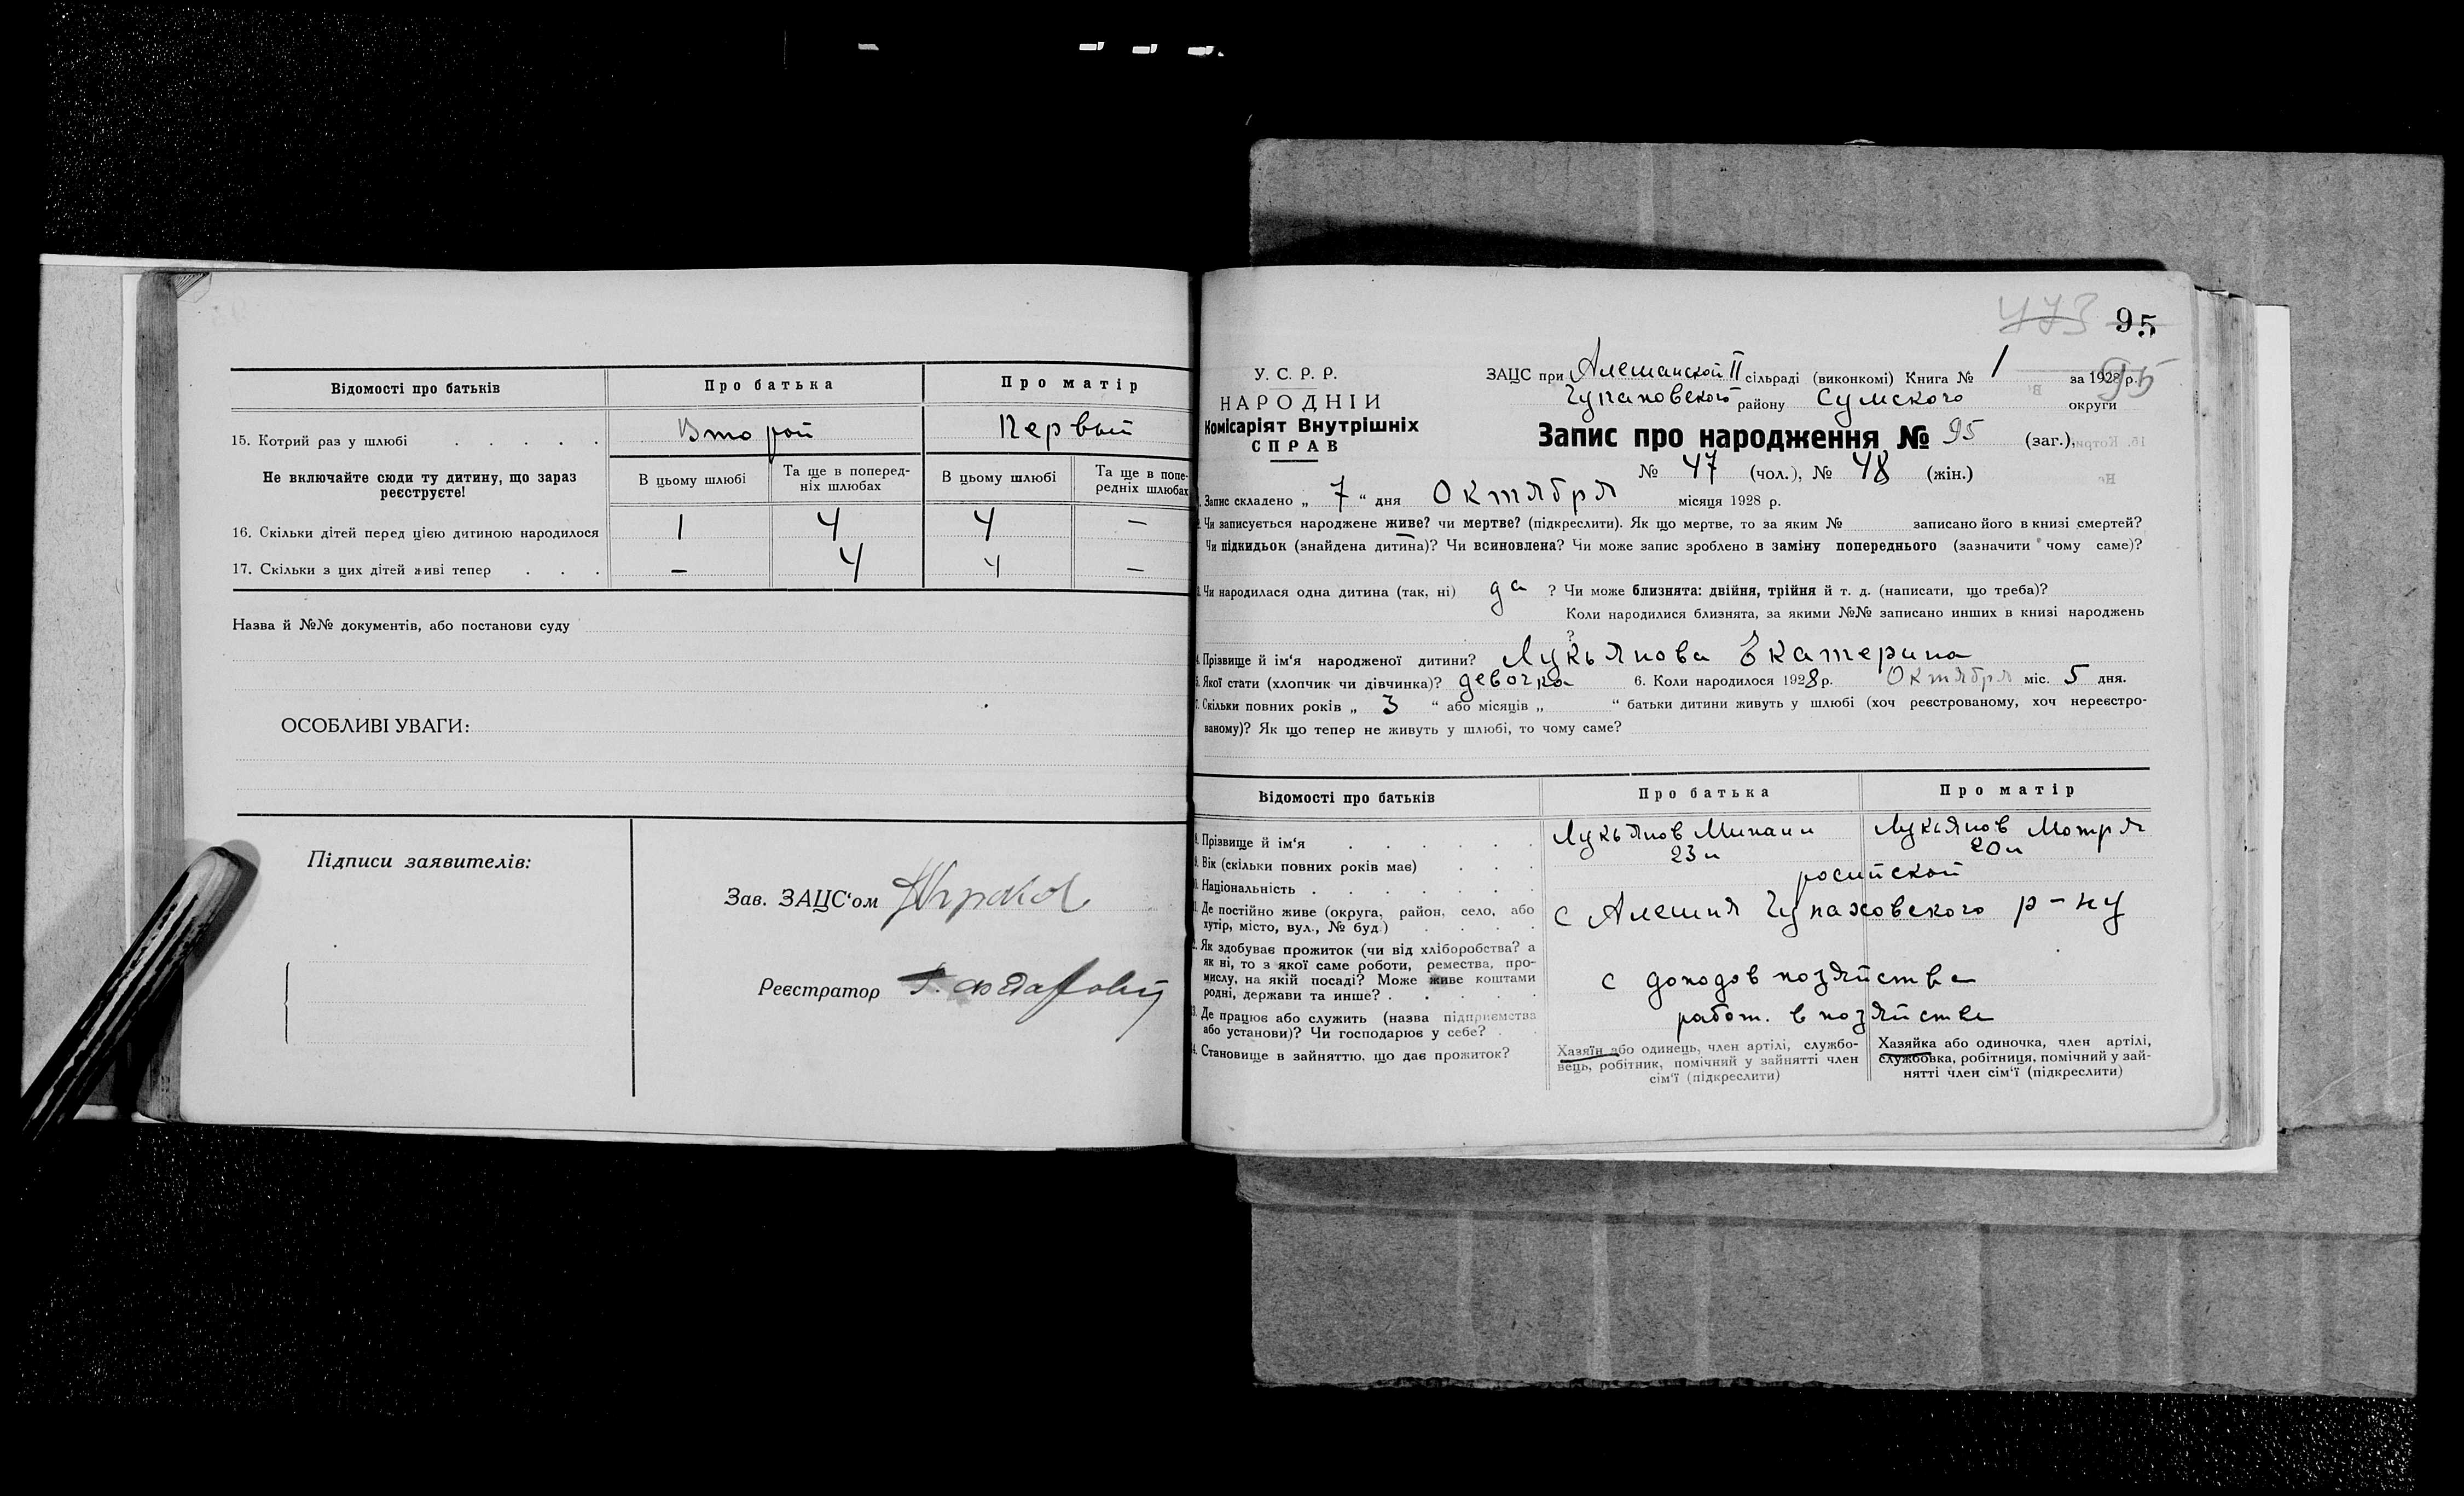 Відомості про батьків
Про батька
Про матір
15. Котрий раз у шлюбі . . . . .
Второй
Первый
Не включайте сюди ту дитину, що зараз реєструєте!
В цьому шлюбі
Та ще в поперед-
ніх шлюбах
В цьому шлюбі
Та ще в попе-
редніх шлюбах
16. Скільки дітей перед цією дитиною народилося
1 4 4 —
17. Скільки з цих дітей живі тепер . . .
— 4 4 —
Назва й №№ документів, або постанови суду
ОСОБЛИВІ УВАГИ:
Підписи заявителів:
Зав. ЗАЦС‘ом
Реєстратор
473 95
95
У. С. Р. Р.
НАРОДНІЙ
Комісаріят Внутрішніх
СПРАВ
ЗАЦС при Алешанской II сільраді (виконкомі) Книга № 1 за 1928 р.
Чупаховского району Сумского округи
Запис про народження № 95 (заг.),
№ 47 (чол.), № 48 (жін.)
1. Запис складено „ 7 “ дня Октября місяця 1928 р.
2. Чи записується народжене живе? чи мертве? (підкреслити). Як що мертве, то за яким № записано його в книзі смертей?
Чи підкидьок (знайдена дитина)? Чи всиновлена? Чи може запис зроблено в заміну попереднього (зазначити чому саме)?
3. Чи народилася одна дитина (так, ні) да ? Чи може близнята: двійня, трійня й т. д. (написати, що треба)?
Коли народилися близнята, за якими №№ записано инших в книзі народжень
?
4. Прізвище й ім‘я народженої дитини? Лукьянова Екатерина
5. Якої стати (хлопчик чи дівчинка)? девочка 6. Коли народилося 1928 р. Октября міс. 5 дня.
7. Скільки повних років „ 3 “ або місяців „ “ батьки дитини живуть у шлюбі (хоч реєстрованому, хоч нереєстро-
ваному)? Як що тепер не живуть у шлюбі, то чому саме?
Відомості про батьків
Про батька
Про матір
8. Прізвище й ім‘я . . . . . .
Лукьянов
Лукьянов Мотря
9. Вік (скільки повних років має) . . .
23 л
20 л
10. Національність . . . . . . .
росийской
11. Де постійно живе (округа, район, село, або
хутір, місто, вул., № буд.) . . . .
с Алешня Чупаховского р-ну
12. Як здобуває прожиток (чи від хліборобства? а
як ні, то з якої саме роботи, ремества, про-
мислу, на якій посаді? Може живе коштами
родні, держави та инше? . . . . .
с доходов хозяйства
13. Де працює або служить (назва підприємства
або установи)? Чи господарює у себе? . .
работ. в хозяйстве
14. Становище в зайняттю, що дає прожиток?
Хазяїн або одинець, член артілі, службо-
вець, робітник, помічний у зайнятті член
сім‘ї (підкреслити)
Хазяйка або одиночка, член артілі,
службовка, робітниця, помічний у зай-
нятті член сім‘ї (підкреслити)